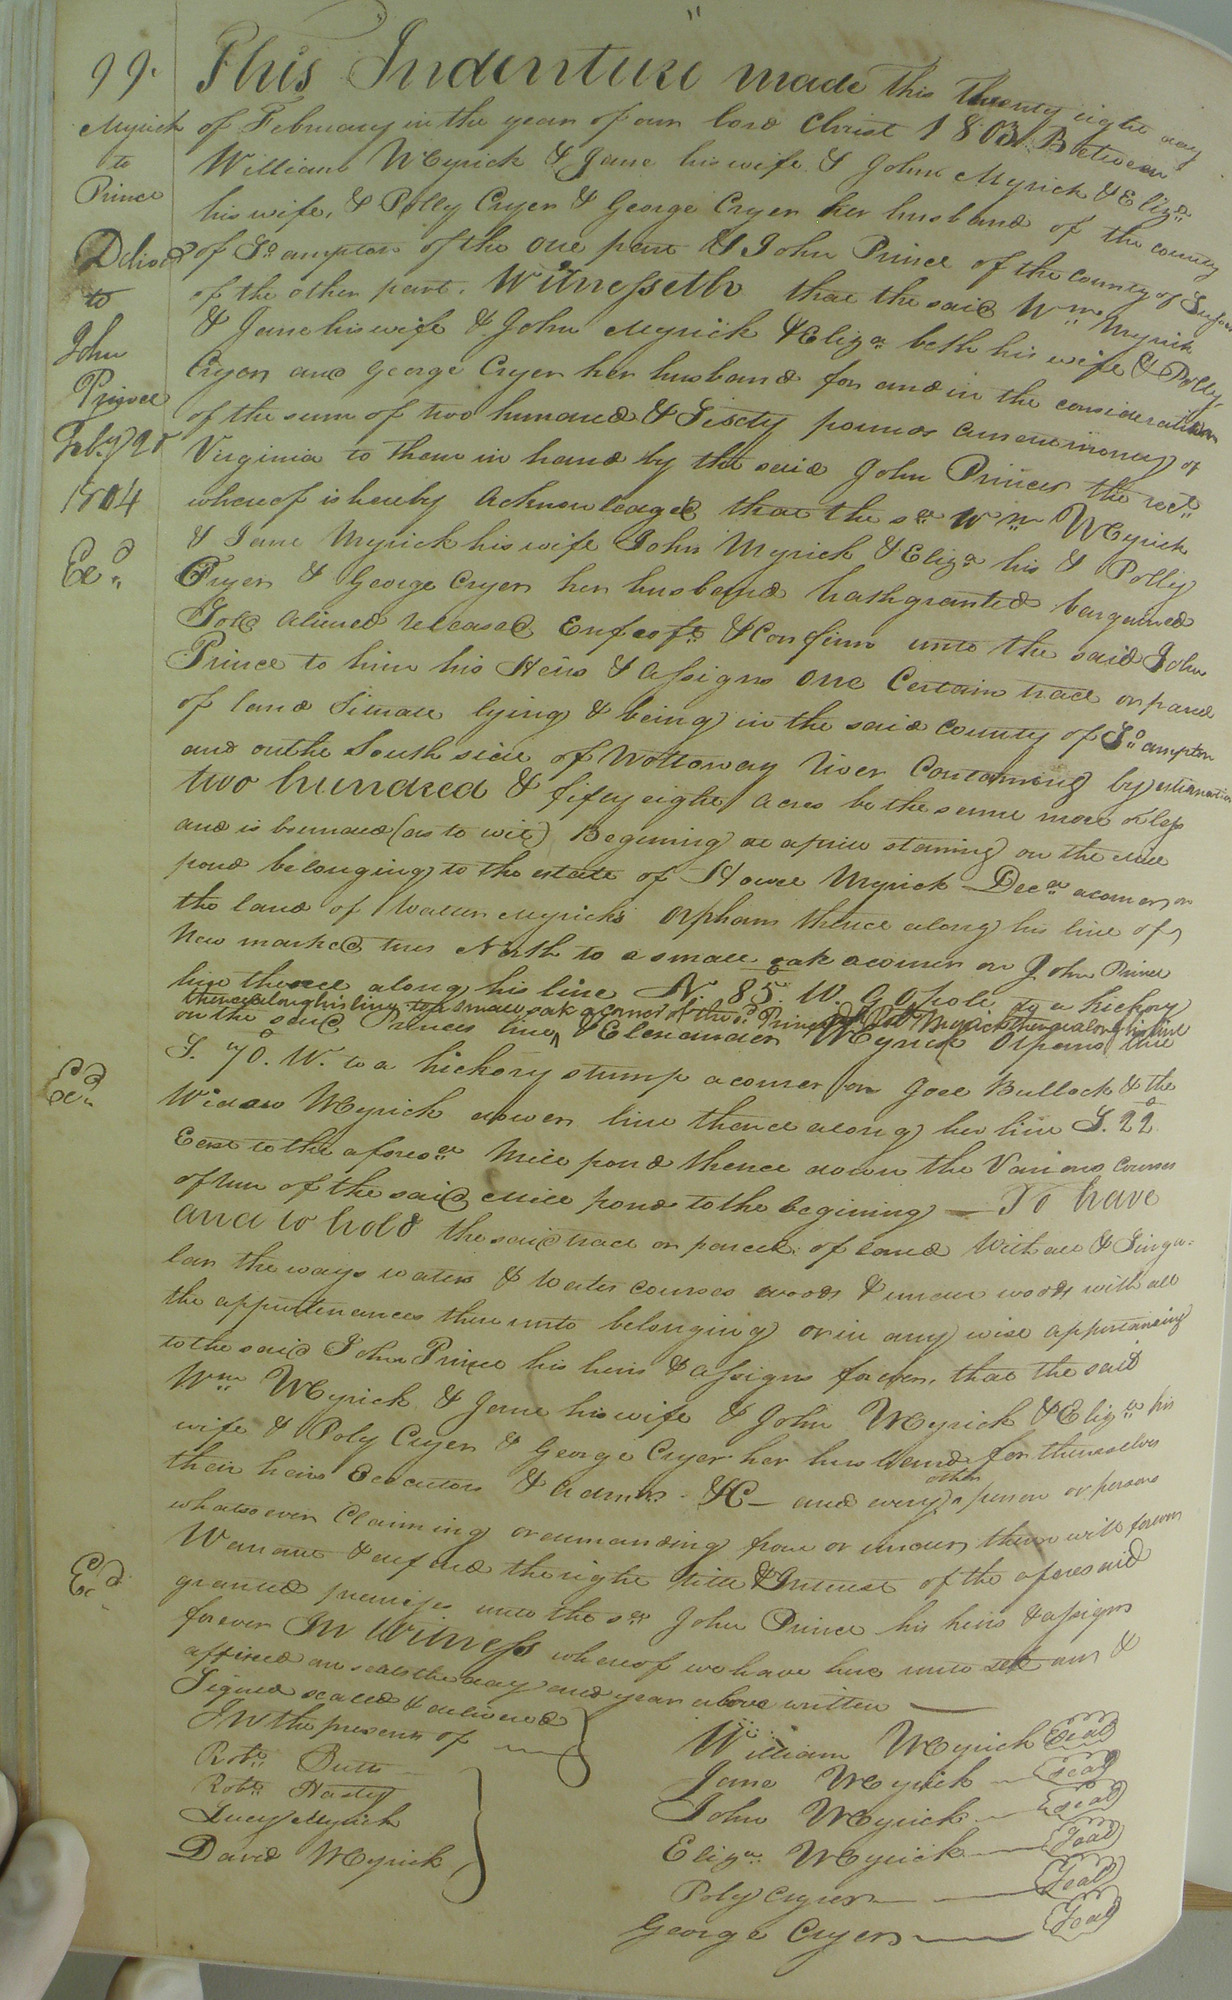 99.
Myrick
to
Prince
Deliv.d
to
John
Prince
Feb.y 28
1804
Ex.d
Ex.d
Ex.d
This Indenture made this twenty eight day
of February in the year of our lord Christ 1803. Between
William Myrick & Jane his wife & John Myrick & Eliz.a
his wife, & Polly Cryer & George Cryer her husband of the county
of So.ampton of the one part & John Prince of the county of Sussex
of the other part. Witnesseth that the said Wm. Myrick
& Jane his wife & John Myrick & Eliz.a beth his wife & Polly
Cryer and George Cryer her husband for and in the consideration
of the sum of two hundred & Sixty pounds current money of
Virginia to them in hand by the said John Prince the rect.
whereof is hereby acknowledged that the sd. Wm. Myrick
& Jane Myrick his wife John Myrick & Eliz.a his & Polly
Cryer & George Cryer her husband hath granted bargained
Sold aliened released Enfeoft & Confirm unto the said John
Prince to him his Heirs & assigns one Certain tract or parcel
of land Situate lying & being in the said county of So.ampton
and on the South side of Nottoway river Containing by estimation
two hundred & fifty eight acres be the same more or less
and is bounded (as to wit) Begining at a pine standing on the mill
pond belonging to the estate of Howel Myrick Decd. a corner on
the land of Walter Myrick's orphans thence along his line of
New marked trees North to a small oak a corner on John Prince
line thence along his line N. 85°. W. 90 pole to a hickory
thence along his line to a small oak a corner of the sd. Prince Myrick thence along his line
on the said Princes line & Elexander Myrick Orpans line
S. 70°. W. to a hickory stump a corner on Joel Bullock & the
Widow Myrick dower line thence along her line S. 22°
East to the afores.d Mill pond thence down the Various courses
of run of the said Mill pond to the begining — To have
and to hold the said tract or parcel of land With all & Singu-
lar the ways waters & Water courses woods & under woods with all
the appurtenances thereunto belonging or in any wise appertaining
to the said John Prince his heirs & assigns forever, that the said
Wm. Myrick & Jane his wife & John Myrick & Eliz.a his
wife & Poly Cryer & George Cryer her husband for themselves
their heirs Executors & Admrs. &C — and every other person or persons
whatsoever Claiming or demanding from or under them will forever
Warrant & defend the right title & Interest of the aforesaid
granted premises unto the sd. John Prince his heirs & assigns
forever In Witness whereof we have here unto set our &
affixed our seals the day and year above written —
Signed sealed & delivered
In the presents of
Robt. Butts
Robt. Hasty
Lucy Myrick
David Myrick
William Myrick Seal
Jane Myrick — Seal
John Myrick — Seal
Eliz.a Myrick — Seal
Poly Cryer — Seal
George Cryer — Seal